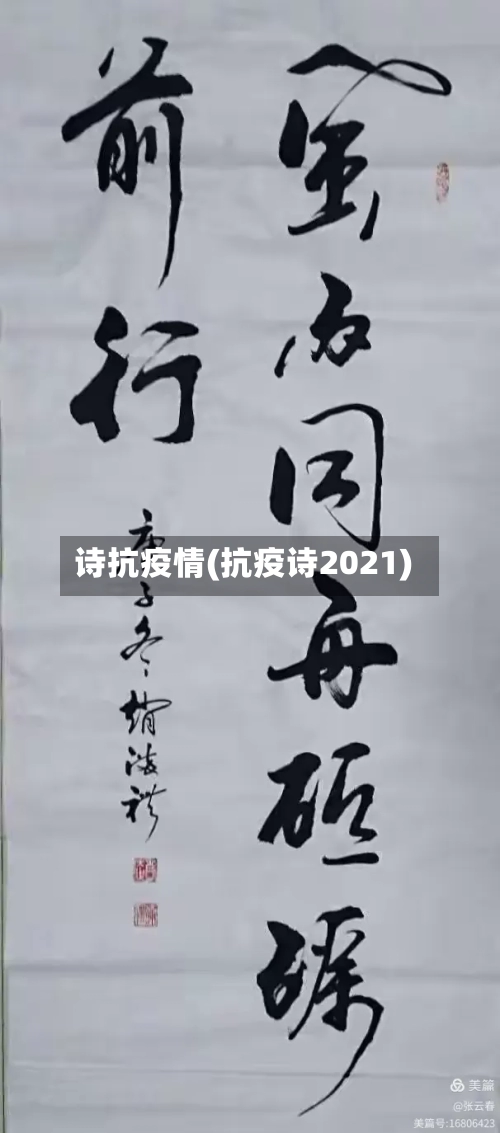 風雨同舟砥砺
前行
庚子冬
诗抗疫情(抗疫诗2021)
美篇
@张云春
美篇号:16806423